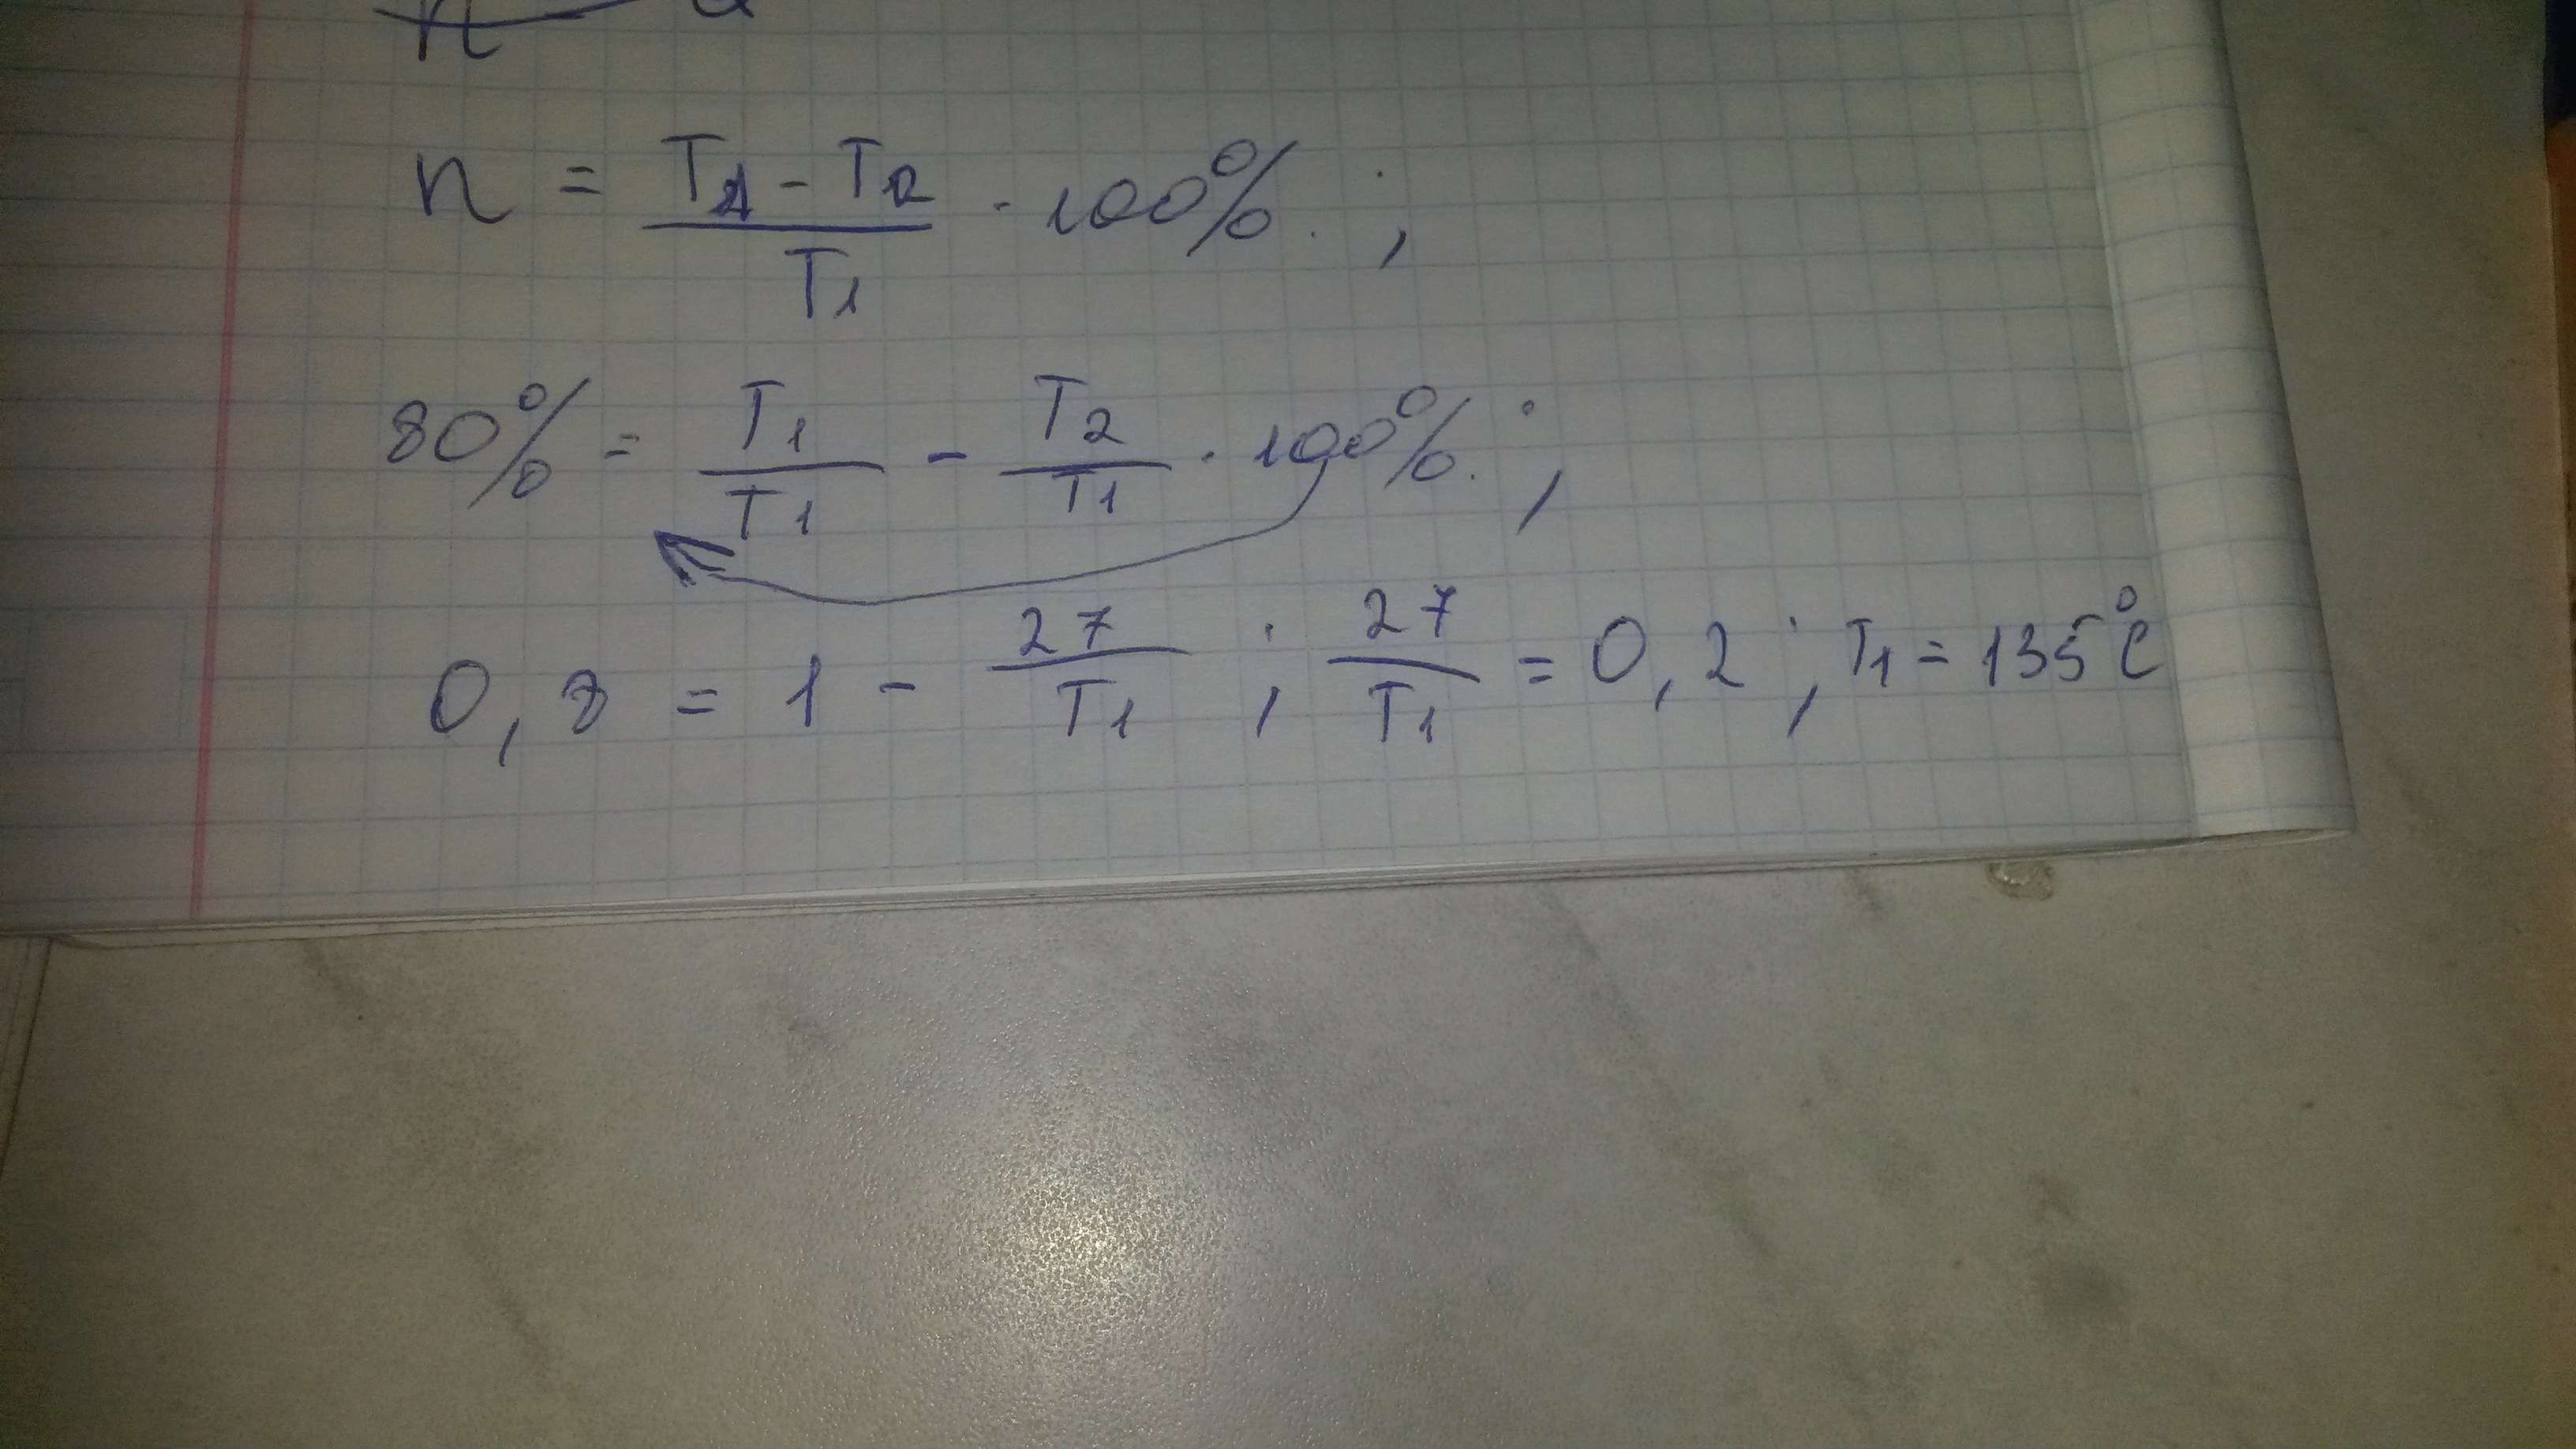 n = (T1 - T2)/T1 · 100%. ;
80% = T1/T1 - T2/T1 · 100%. ;
0,8 = 1 - 27/T1 ; 27/T1 = 0,2 ; T1 = 135°C